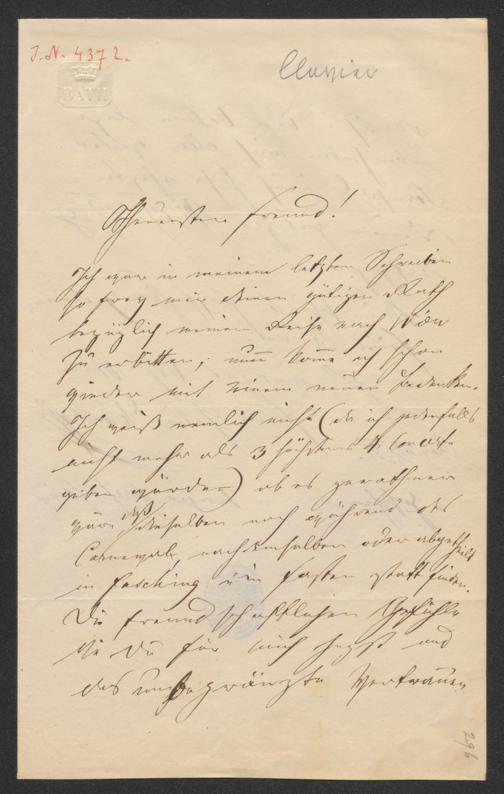 J.N. 4372.
BATH
Theuerster Freund!
Ich war in meinem letzten Schreiben
so frey mir deinen gütigen Rath
bezüglich meiner Reise nach Wien
zu erbitten; nun komme ich schon
wieder mit einem neuen Bedenken.
Ich weiß nemlich nicht (da ich jedenfalls
nicht mehr als 3 höchstens 4 Concerte
geben würde) ob es gerathener
wäre daß dieselben noch während des
Carnevals, nach demselben oder abgetheilt
in Fasching u in Fasten statt finden.
Die freundschaftlichen Gefühle
die Du für mich hegst und
das unbegränzte Vertrauen
296